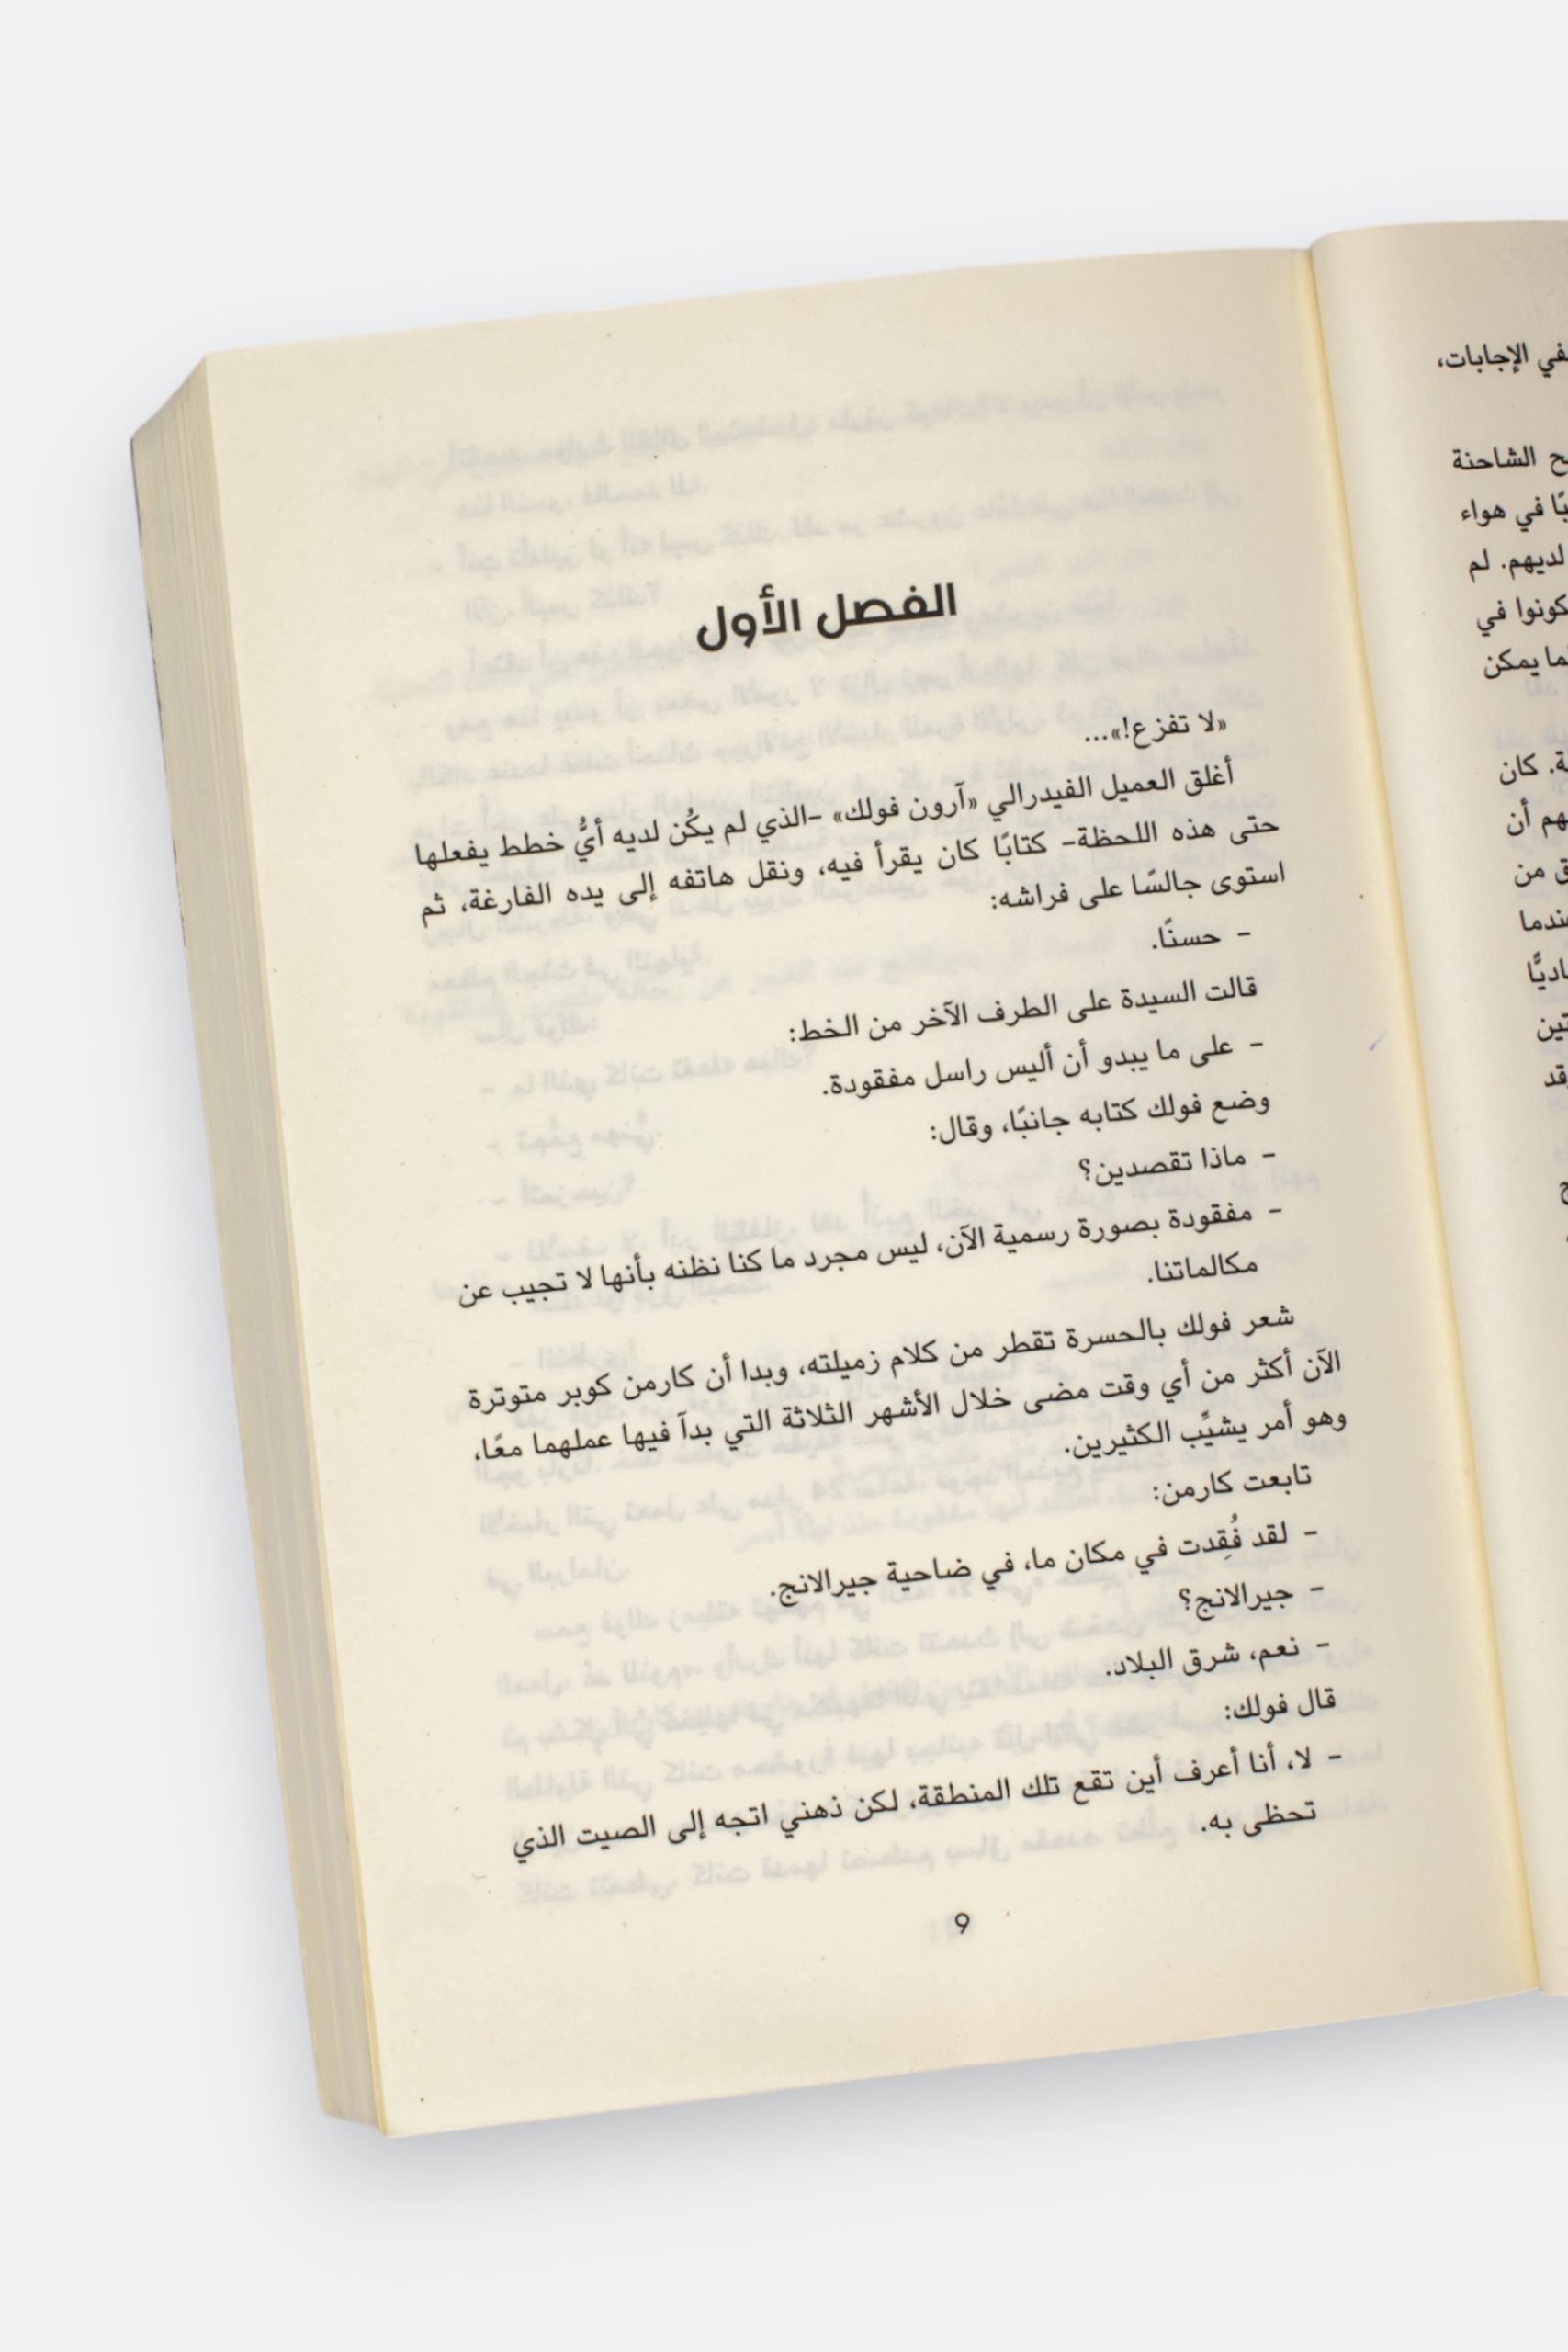 في الإجابات،
ح الشاحنة
في هواء
لديهم. لم
كونوا في
يمكن
كان
أن
من
الفصل الأول
«لا تفزع!»...
أغلق العميل الفيدرالي «آرون فولك» -الذي لم يكُن لديه أيُّ خطط يفعلها
حتى هذه اللحظة- كتابًا كان يقرأ فيه، ونقل هاتفه إلى يده الفارغة، ثم
استوى جالسًا على فراشه:
- حسنًا.
قالت السيدة على الطرف الآخر من الخط:
- على ما يبدو أن أليس راسل مفقودة.
وضع فولك كتابه جانبًا، وقال:
- ماذا تقصدين؟
- مفقودة بصورة رسمية الآن، ليس مجرد ما كنا نظنه بأنها لا تجيب عن
مكالماتنا.
شعر فولك بالحسرة تقطر من كلام زميلته، وبدا أن كارمن كوبر متوترة
الآن أكثر من أي وقت مضى خلال الأشهر الثلاثة التي بدآ فيها عملهما معًا،
وهو أمر يشيِّب الكثيرين.
تابعت كارمن:
- لقد فُقِدت في مكان ما، في ضاحية جيرالانج.
- جيرالانج؟
- نعم، شرق البلاد.
قال فولك:
- لا، أنا أعرف أين تقع تلك المنطقة، لكن ذهني اتجه إلى الصيت الذي
تحظى به.
9